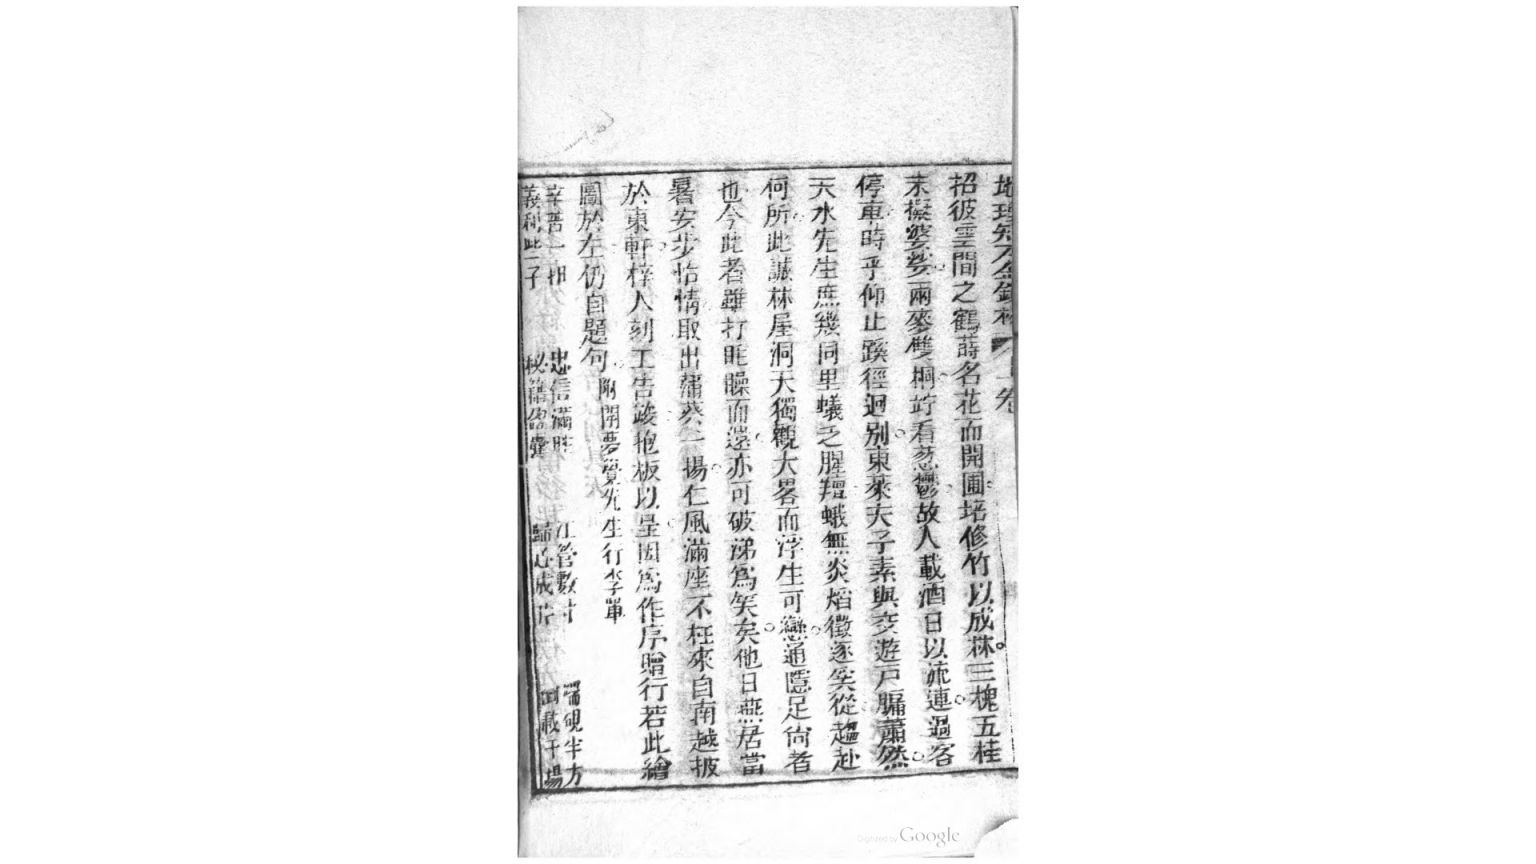 地理知
上卷
招彼雲間之鶴蒔名花而開圃培修竹以成林三槐五桂
未擬婆娑兩麥雙桐竚看蔥鬱故人載酒日以流連過客
停車時乎仰止蹊徑迥別東萊夫子素與交遊戶牖蕭然
天水先生庶幾同里蟻之腥羶蛾無炎焰徵逐奚從趨赴
何所此誠林屋洞天獨觀大畧而浮生可戀通隱足尙者
也今此者雖打眊矂而還亦可破涕爲笑矣他日燕居當
暑安步怡情取出蒲葵一揚仁風滿座不枉來自南越披
於東軒梓人刻工告竣抱板以呈因爲作序贈行若此繪
圖於左仍自題句 附開夢覺先生行李單
辛苦一 忠信滿 江管數寸 端硯半方
義利此二子 秘籍盈囊 歸心成片